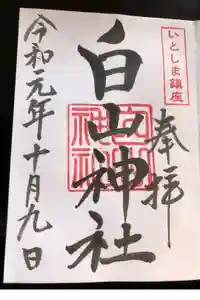 いとしま鎮座
奉拝
白山神社
令和元年十月九日